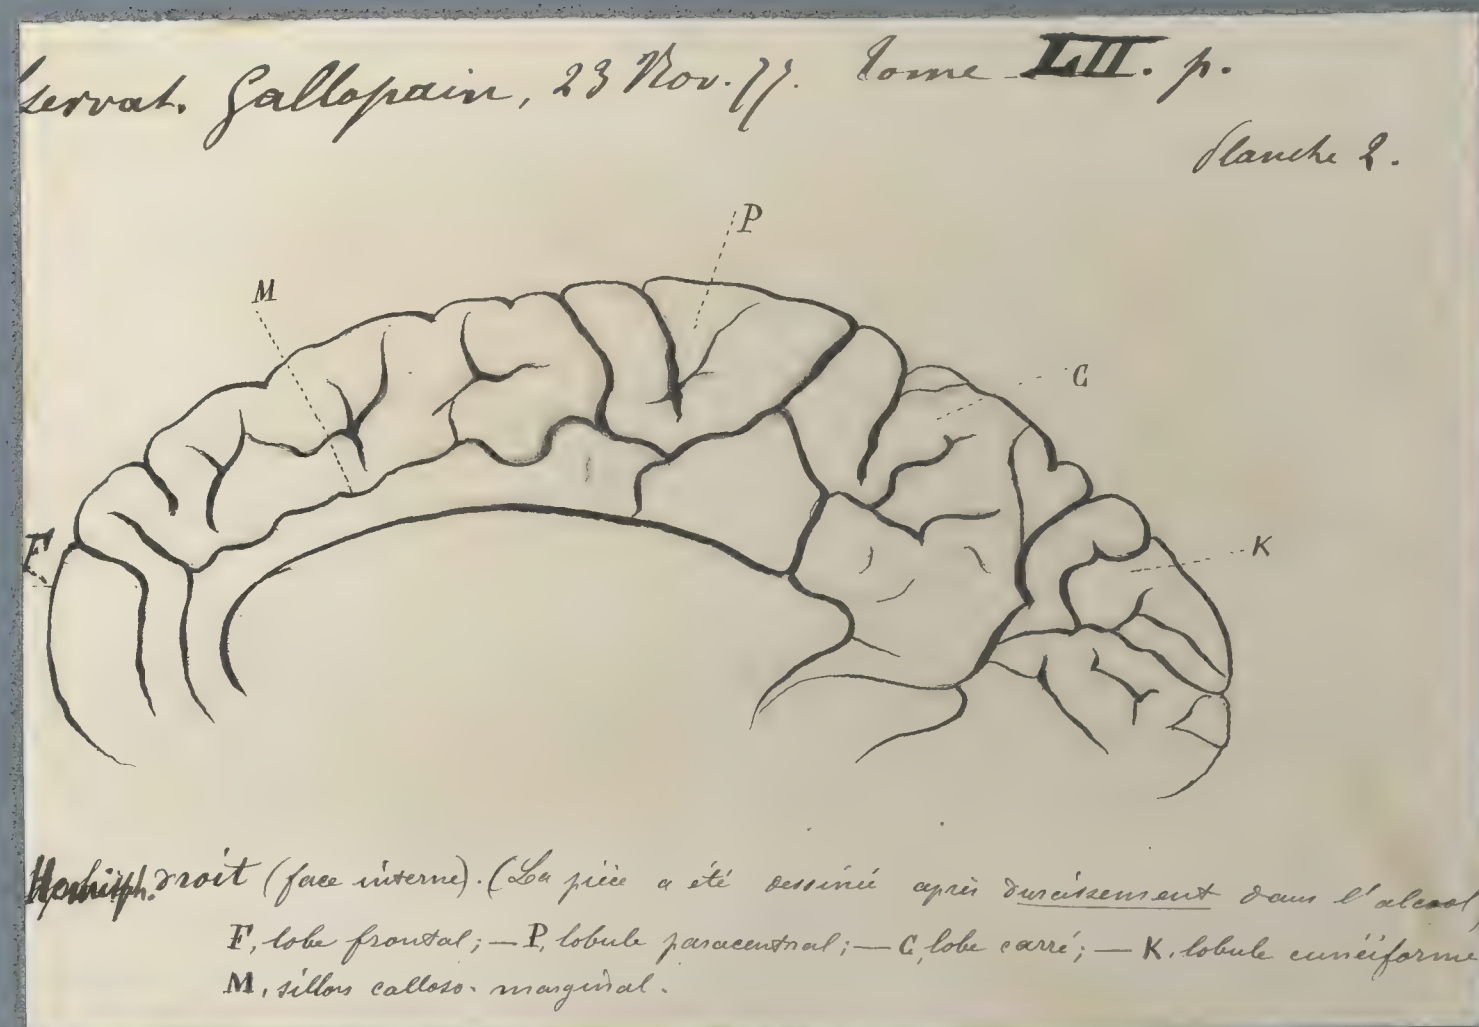 servat. Gallopain, 23 Nov. 77. Tome LII. p.
Planche 2.
P
M
C
F
K
Hémisph. droit (face interne). (La pièce a été dessinée après durcissement dans l'alcool,
F, lobe frontal; — P, lobule paracentral; — C, lobe carré; — K, lobule cunéiforme
M, sillon calloso-marginal.